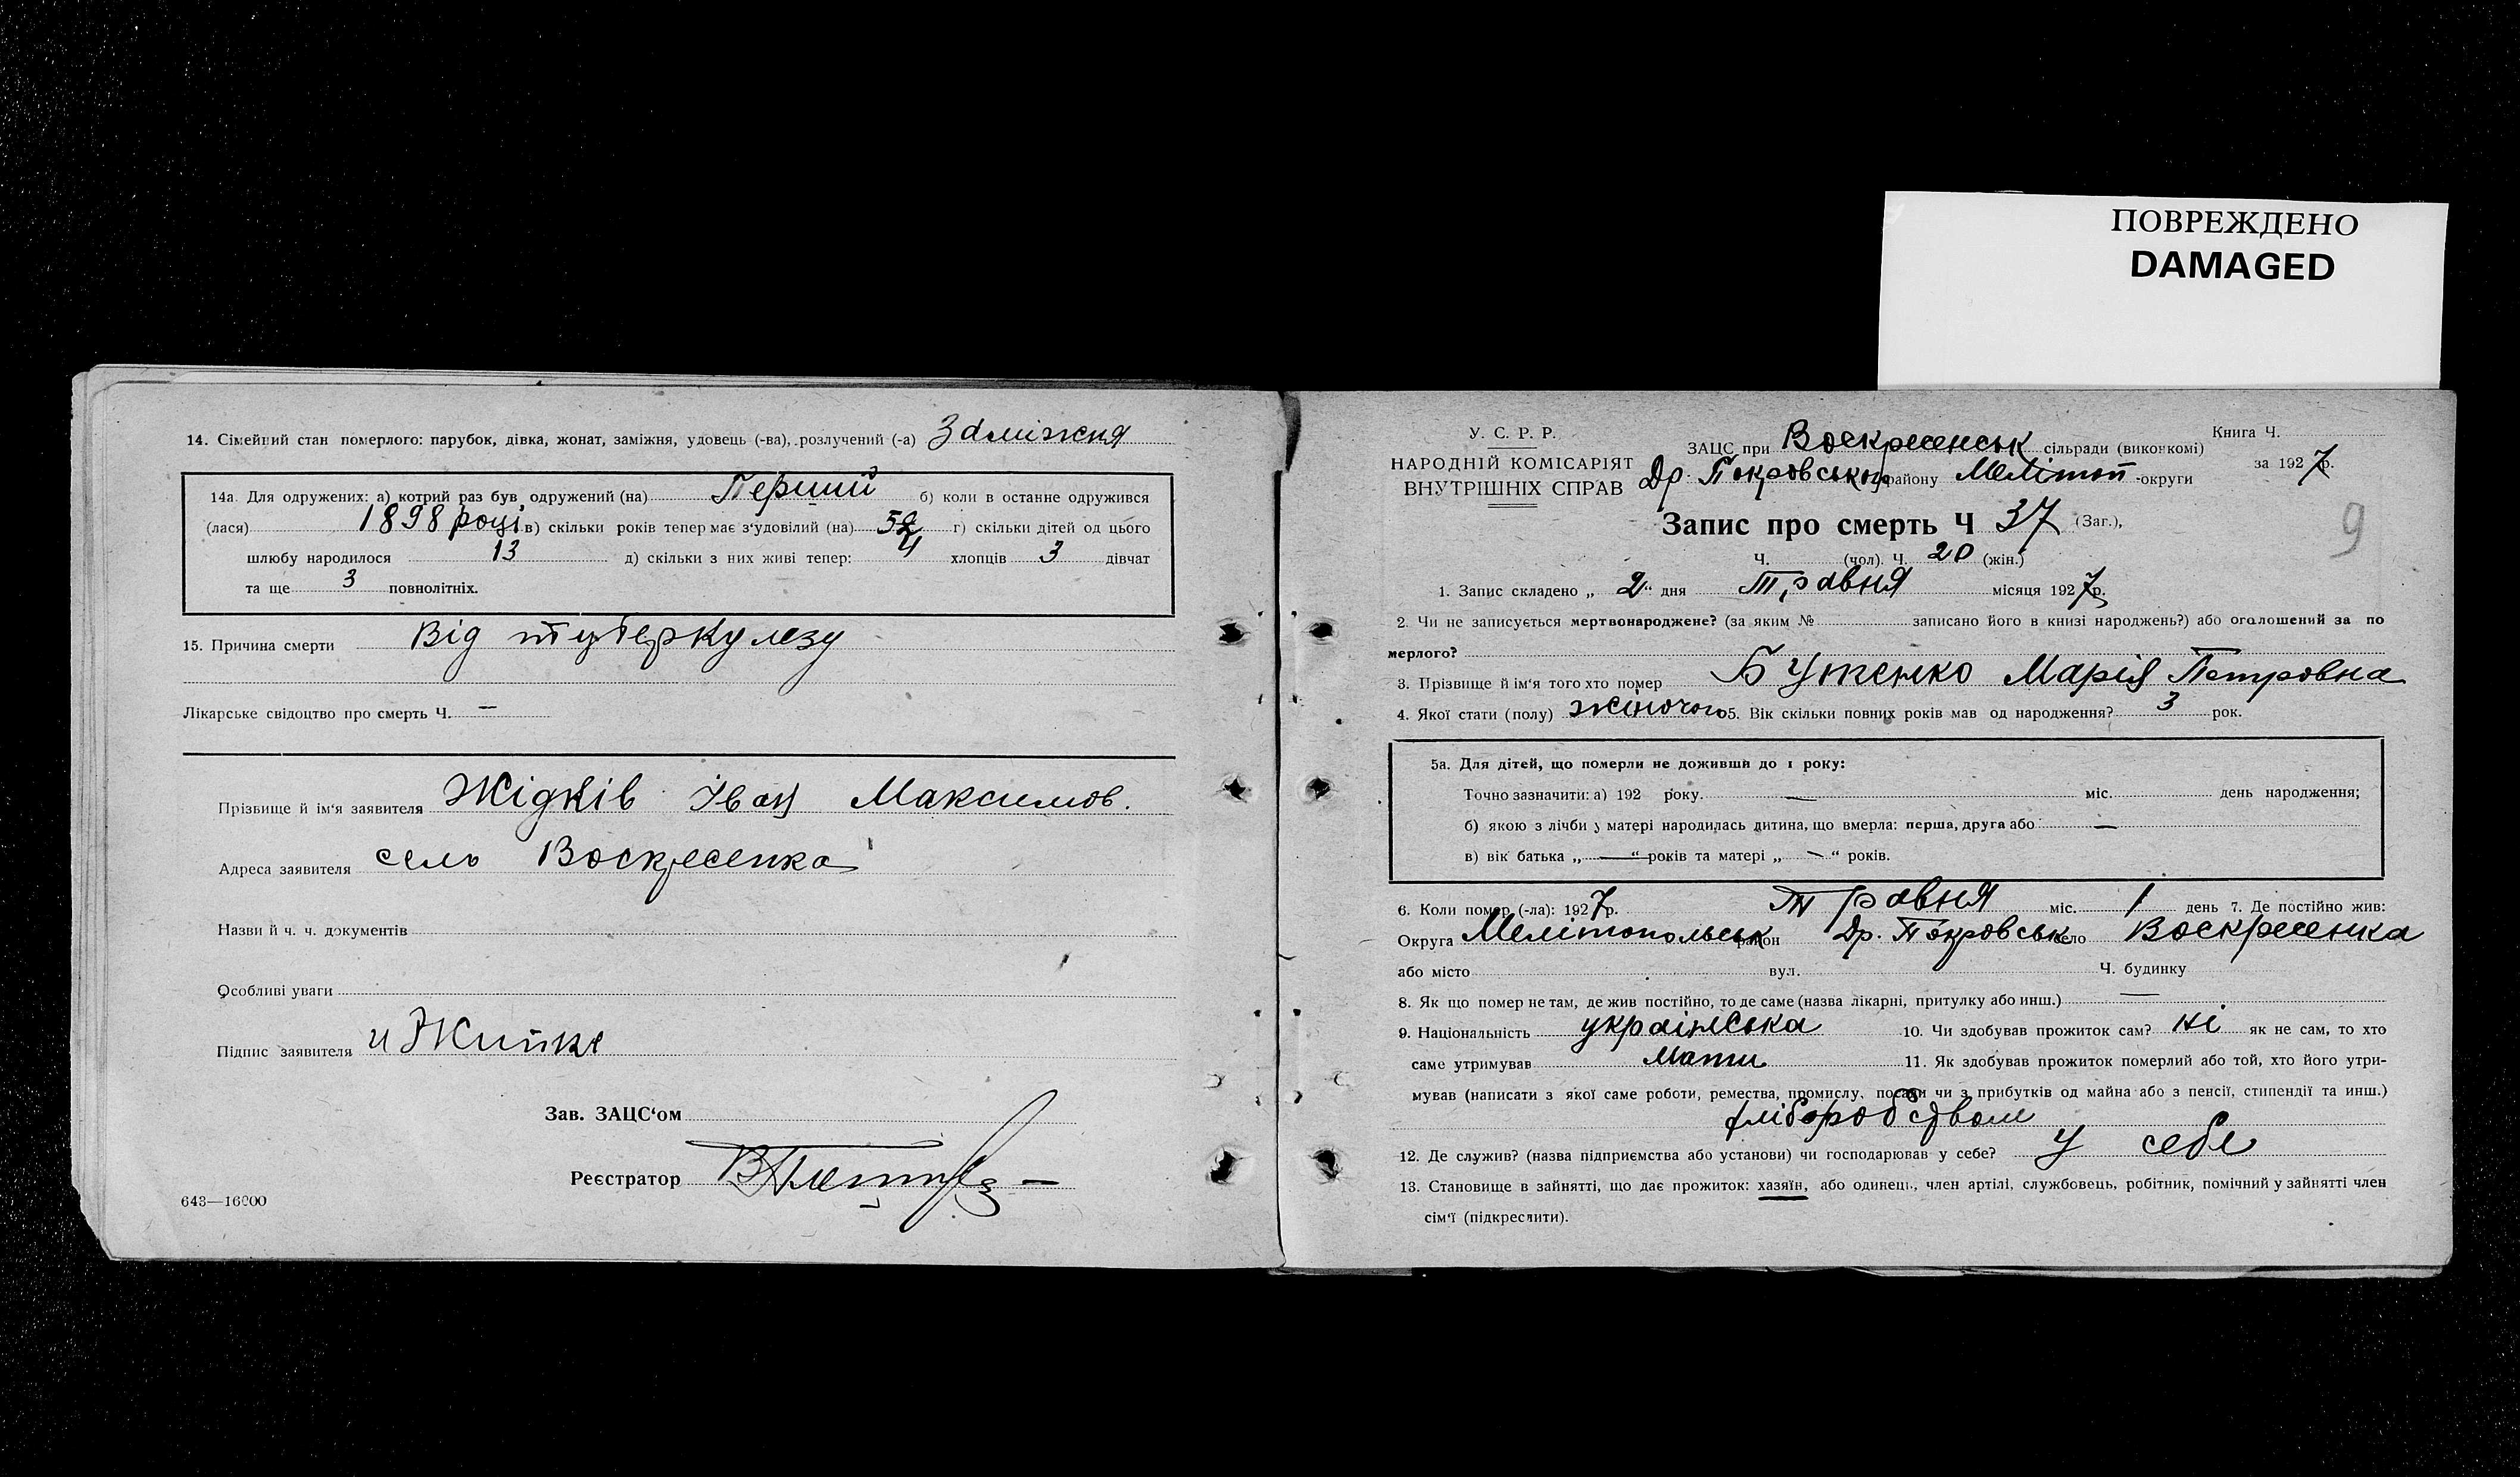 ПОВРЕЖДЕНО
DAMAGED
14. Сімейний стан померлого: парубок, дівка, жонат, заміжня, удовець (-ва), розлучений (-а) Заміжня
14а Для одружених: а) котрий раз був одружений (на) Перший б) коли в останне одружився
(лася) 1898 році в) скільки років тепер має з'удовілий (на) 52 г) скільки дітей од цього
шлюбу народилося 13 д) скільки з них живі тепер: 4 хлопців 3 дівчат
та ще 3 повнолітніх.
15. Причина смерти Від туберкулезу
Лікарське свідоцтво про смерть Ч. —
Прізвище й ім'я заявителя Жідків Іван Максимов.
Адреса заявителя село Воскресенка
Назви й ч. ч. документів
Особливі уваги
Підпис заявителя
Зав. ЗАЦС'ом
Реєстратор
643—16000
У. С. Р. Р.
НАРОДНІЙ КОМІСАРІЯТ
ВНУТРІШНІХ СПРАВ
Книга Ч.
ЗАЦС при Воскресенськ сільради (виконкомі)
за 1927р.
Др. Покровського району Мелітоп -округи
Запис про смерть Ч 37 (Заг.),
9
Ч. (чол). Ч. 20 (жін.)
1. Запис складено „ 2 “ дня Травня місяця 1927р.
2. Чи не записується мертвонароджене? (за яким № записано його в книзі народжень?) або оголошений за по
мерлого?
3. Прізвище й ім'я того хто помер Бутенко Марія Петровна
4. Якої стати (полу) жіночого 5. Вік скільки повних років мав од народження? 3 рок.
5а. Для дітей, що померли не доживши до 1 року:
Точно зазначити: а) 192 року. — міс. день народження;
б) якою з лічби у матері народилась дитина, що вмерла: перша, друга або —
в) вік батька „ — “ років та матері „ — “ років.
6. Коли помер (-ла): 1927р. Травня міс. 1 день 7. Де постійно жив:
Округа Мелітопольськ район Др. Покровськ село Воскресенка
або місто вул. Ч. будинку
8. Як що помер не там, де жив постійно, то де саме (назва лікарні, притулку або инш.) —
9. Національність українська 10. Чи здобував прожиток сам? ні як не сам, то хто
саме утримував Мати 11. Як здобував прожиток померлий або той, хто його утри-
мував (написати з якої саме роботи, ремества, промислу, посади чи з прибутків од майна або з пенсії, стипендії та инш.)
хліборобством
12. Де служив? (назва підприємства або установи) чи господарював у себе? У себе
13. Становище в зайнятті, що дає прожиток: хазяїн, або одинець, член артілі, службовець, робітник, помічний у зайнятті член
сім'ї (підкреслити).